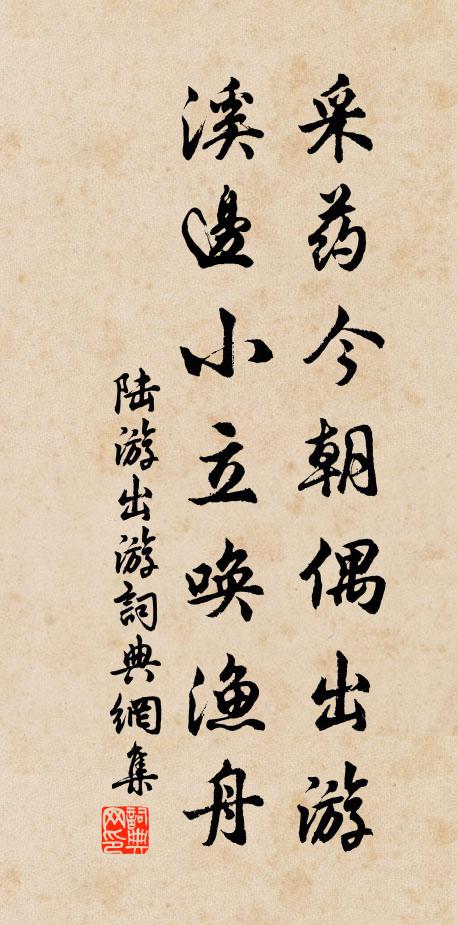 采药今朝偶出游
溪邊小立唤渔舟
陆游出游詞典網集
詞典网印